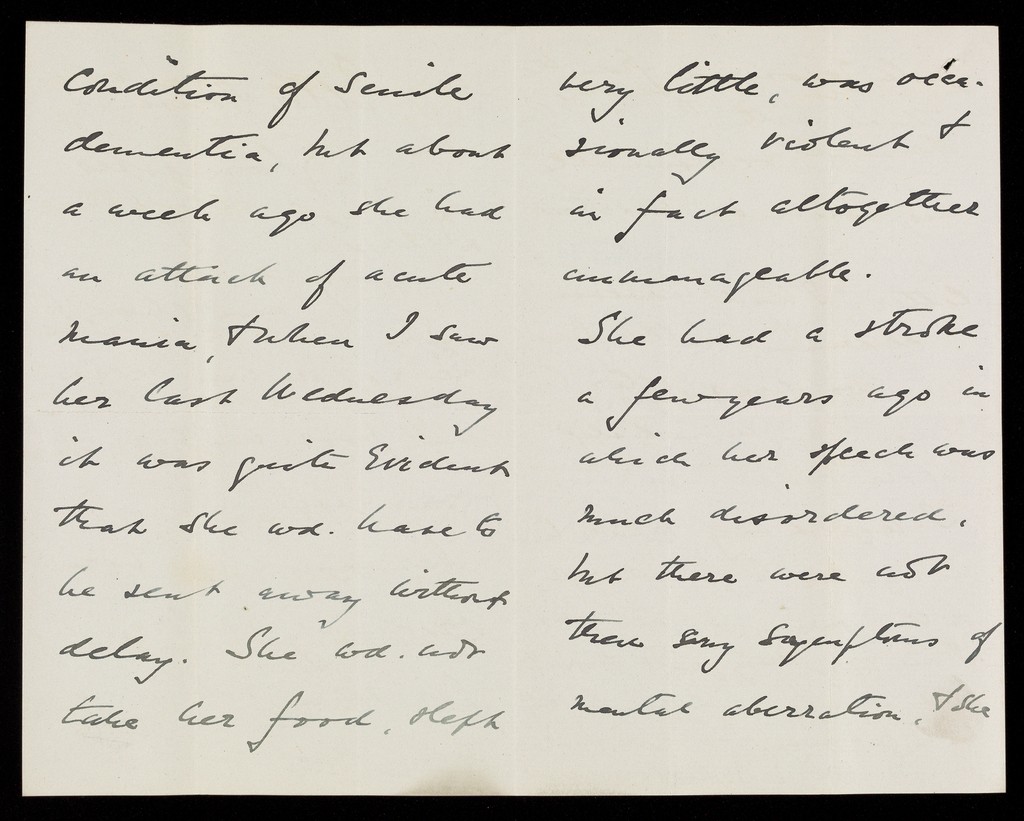 condition of senile
dementia, but about
a week ago she had
an attack of acute
mania, & when I saw
her last Wednesday
it was quite evident
that she wd. have to
be sent away without
delay. She wd. not
take her food, slept
very little, was occa-
sionally violent &
in fact altogether
unmanageable.
She had a stroke
a few years ago in
which her speech was
much disordered,
but there were not
then any symptoms of
mental aberration, & she